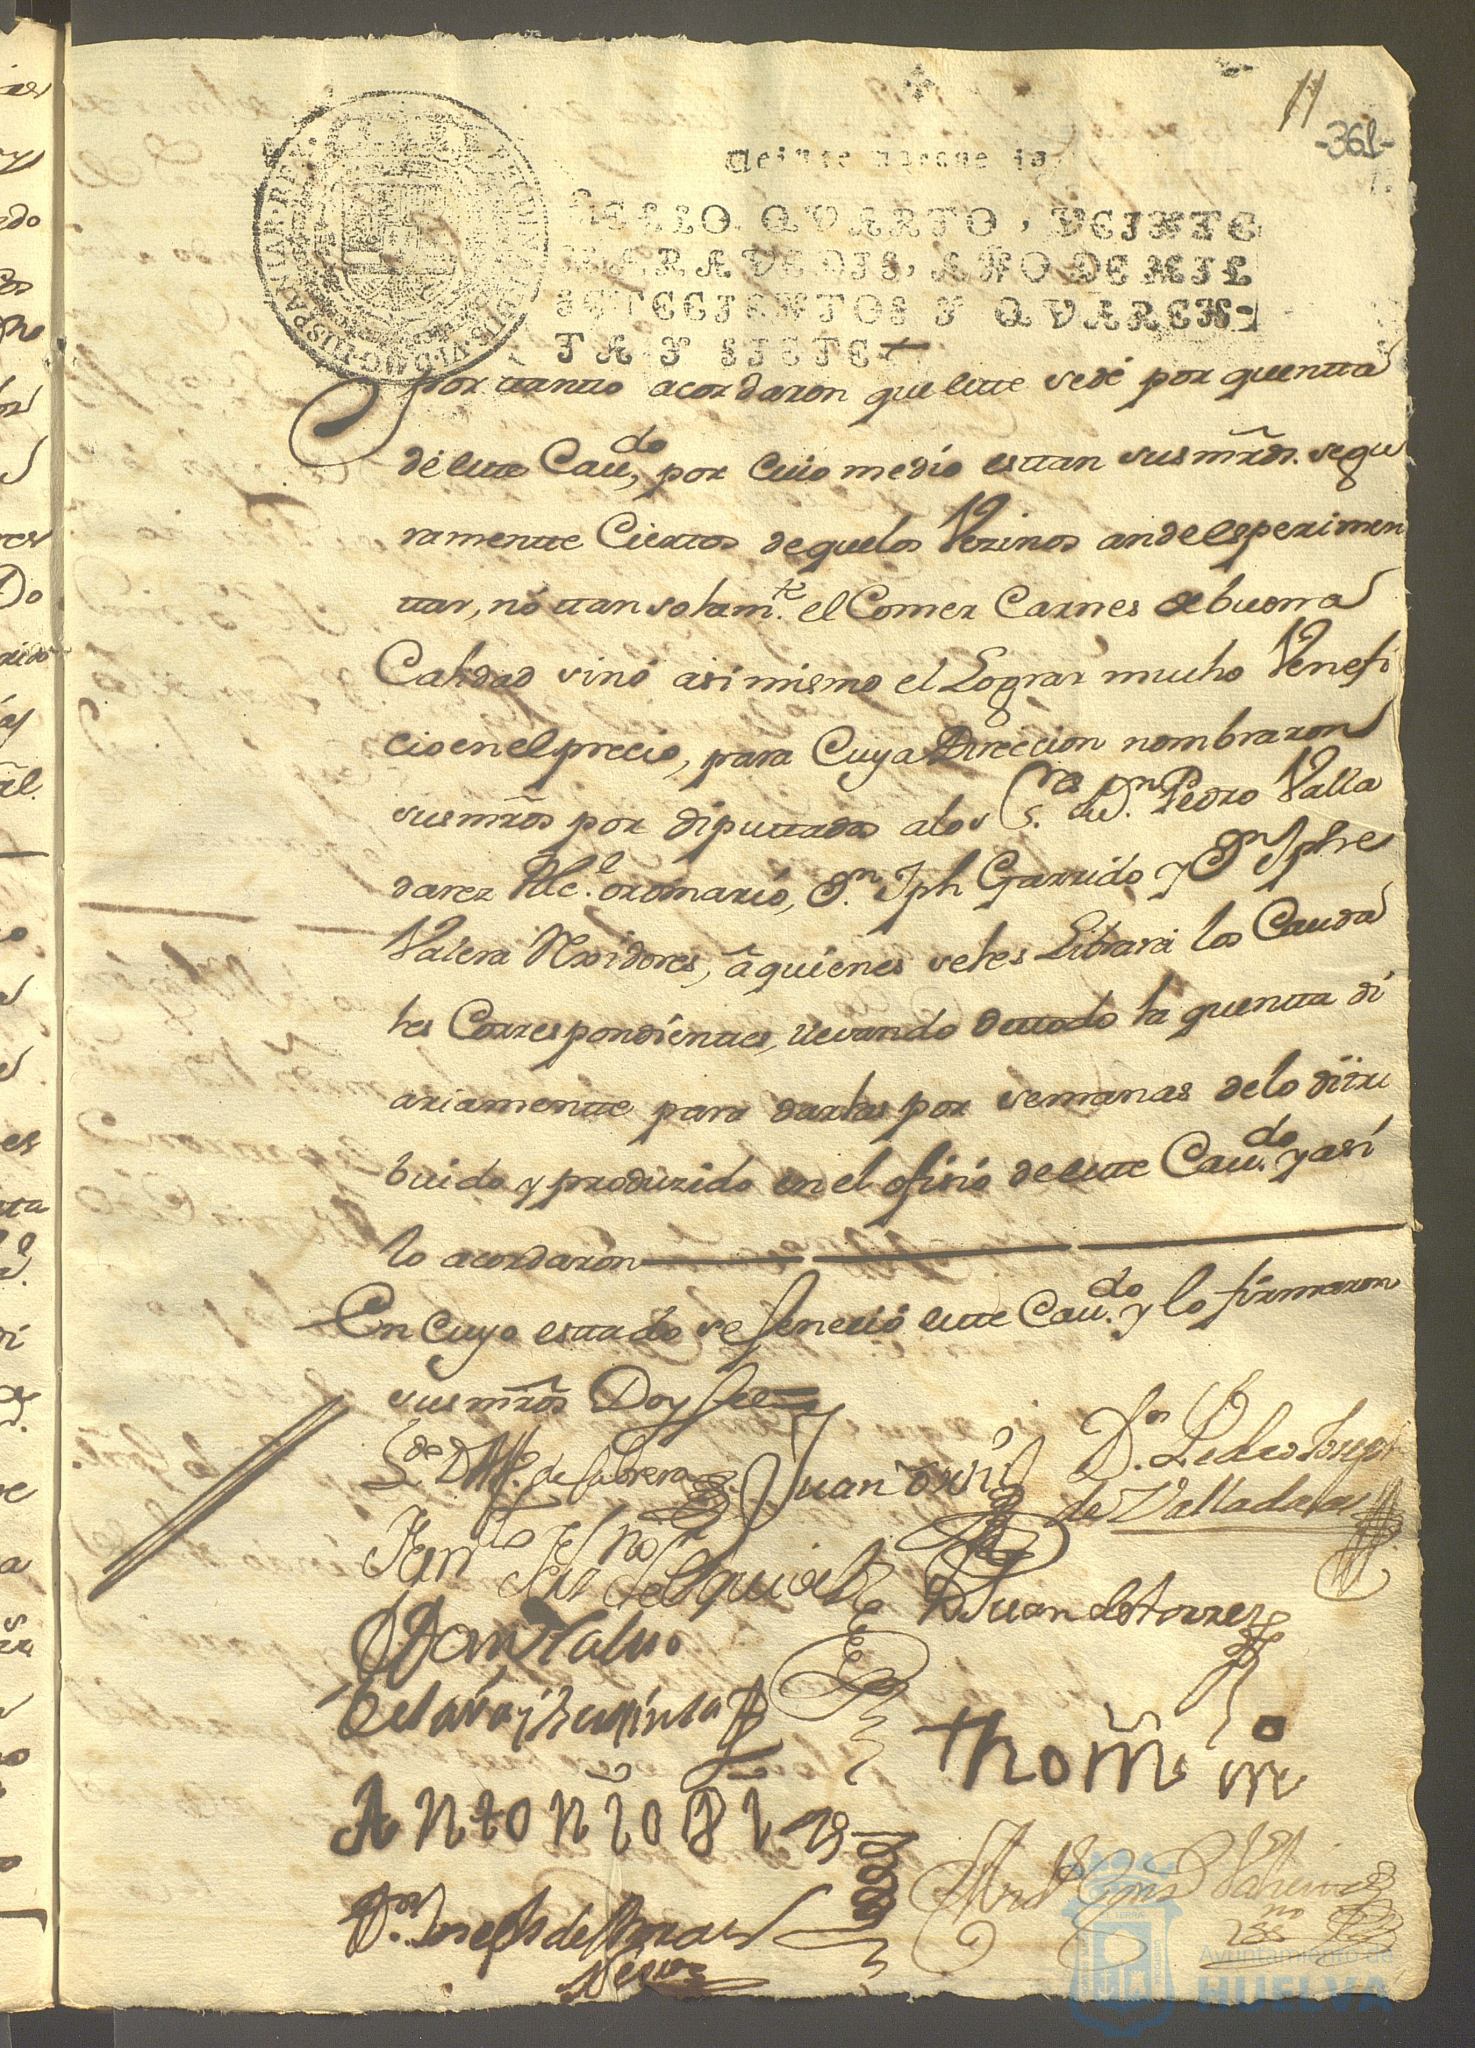 11
-361-
Veinte maravedis
SELLO QVARTO, VEINTE
MARAVEDIS, AÑO DE MIL
SETECIENTOS Y QVAREN-
TA Y SIETE
Por ttantto acordaron que este se dé por quentta
de este Cauᵈᵒ, por Cuio medio esttan sus mr̃ds. segu
ramentte Ciertos de que los Vezinos an de esperimen
ttar, nó ttan solamᵗᵉ. el Comer Carnes de buena
Calidad sinó asimismo el Lograr mucho Venefi
cio en el precio, para Cuya Direccion nombraron
sus mr̃ds por diputtados alos Sʳᵉˢ. Dⁿ. Pedro Valla
darez Alcˡ. ordinario, Dⁿ. Jph Garrido y Dⁿ Jph
Valera Rexidores, á quienes seles Librará los Cauda
les Correspondienttes, llevando de ttodo la quentta di
ariamentte para darlas por semanas de lo distri
buido y produzido en el ofizio de este Cauᵈᵒ. y asi
lo acordaron
En cuyo esttado se fenezió este Cauᵈᵒ. y lo firmaron
sus mr̃ds Doy fee
Lᵈᵒ D de Cabrera
Juan
Dⁿ. Pedro
de Valladares
Esquivel
D Juan de Torres
Antonio
Thomas
Dⁿ. Joseph de
Ayuntamiento de
HUELVA